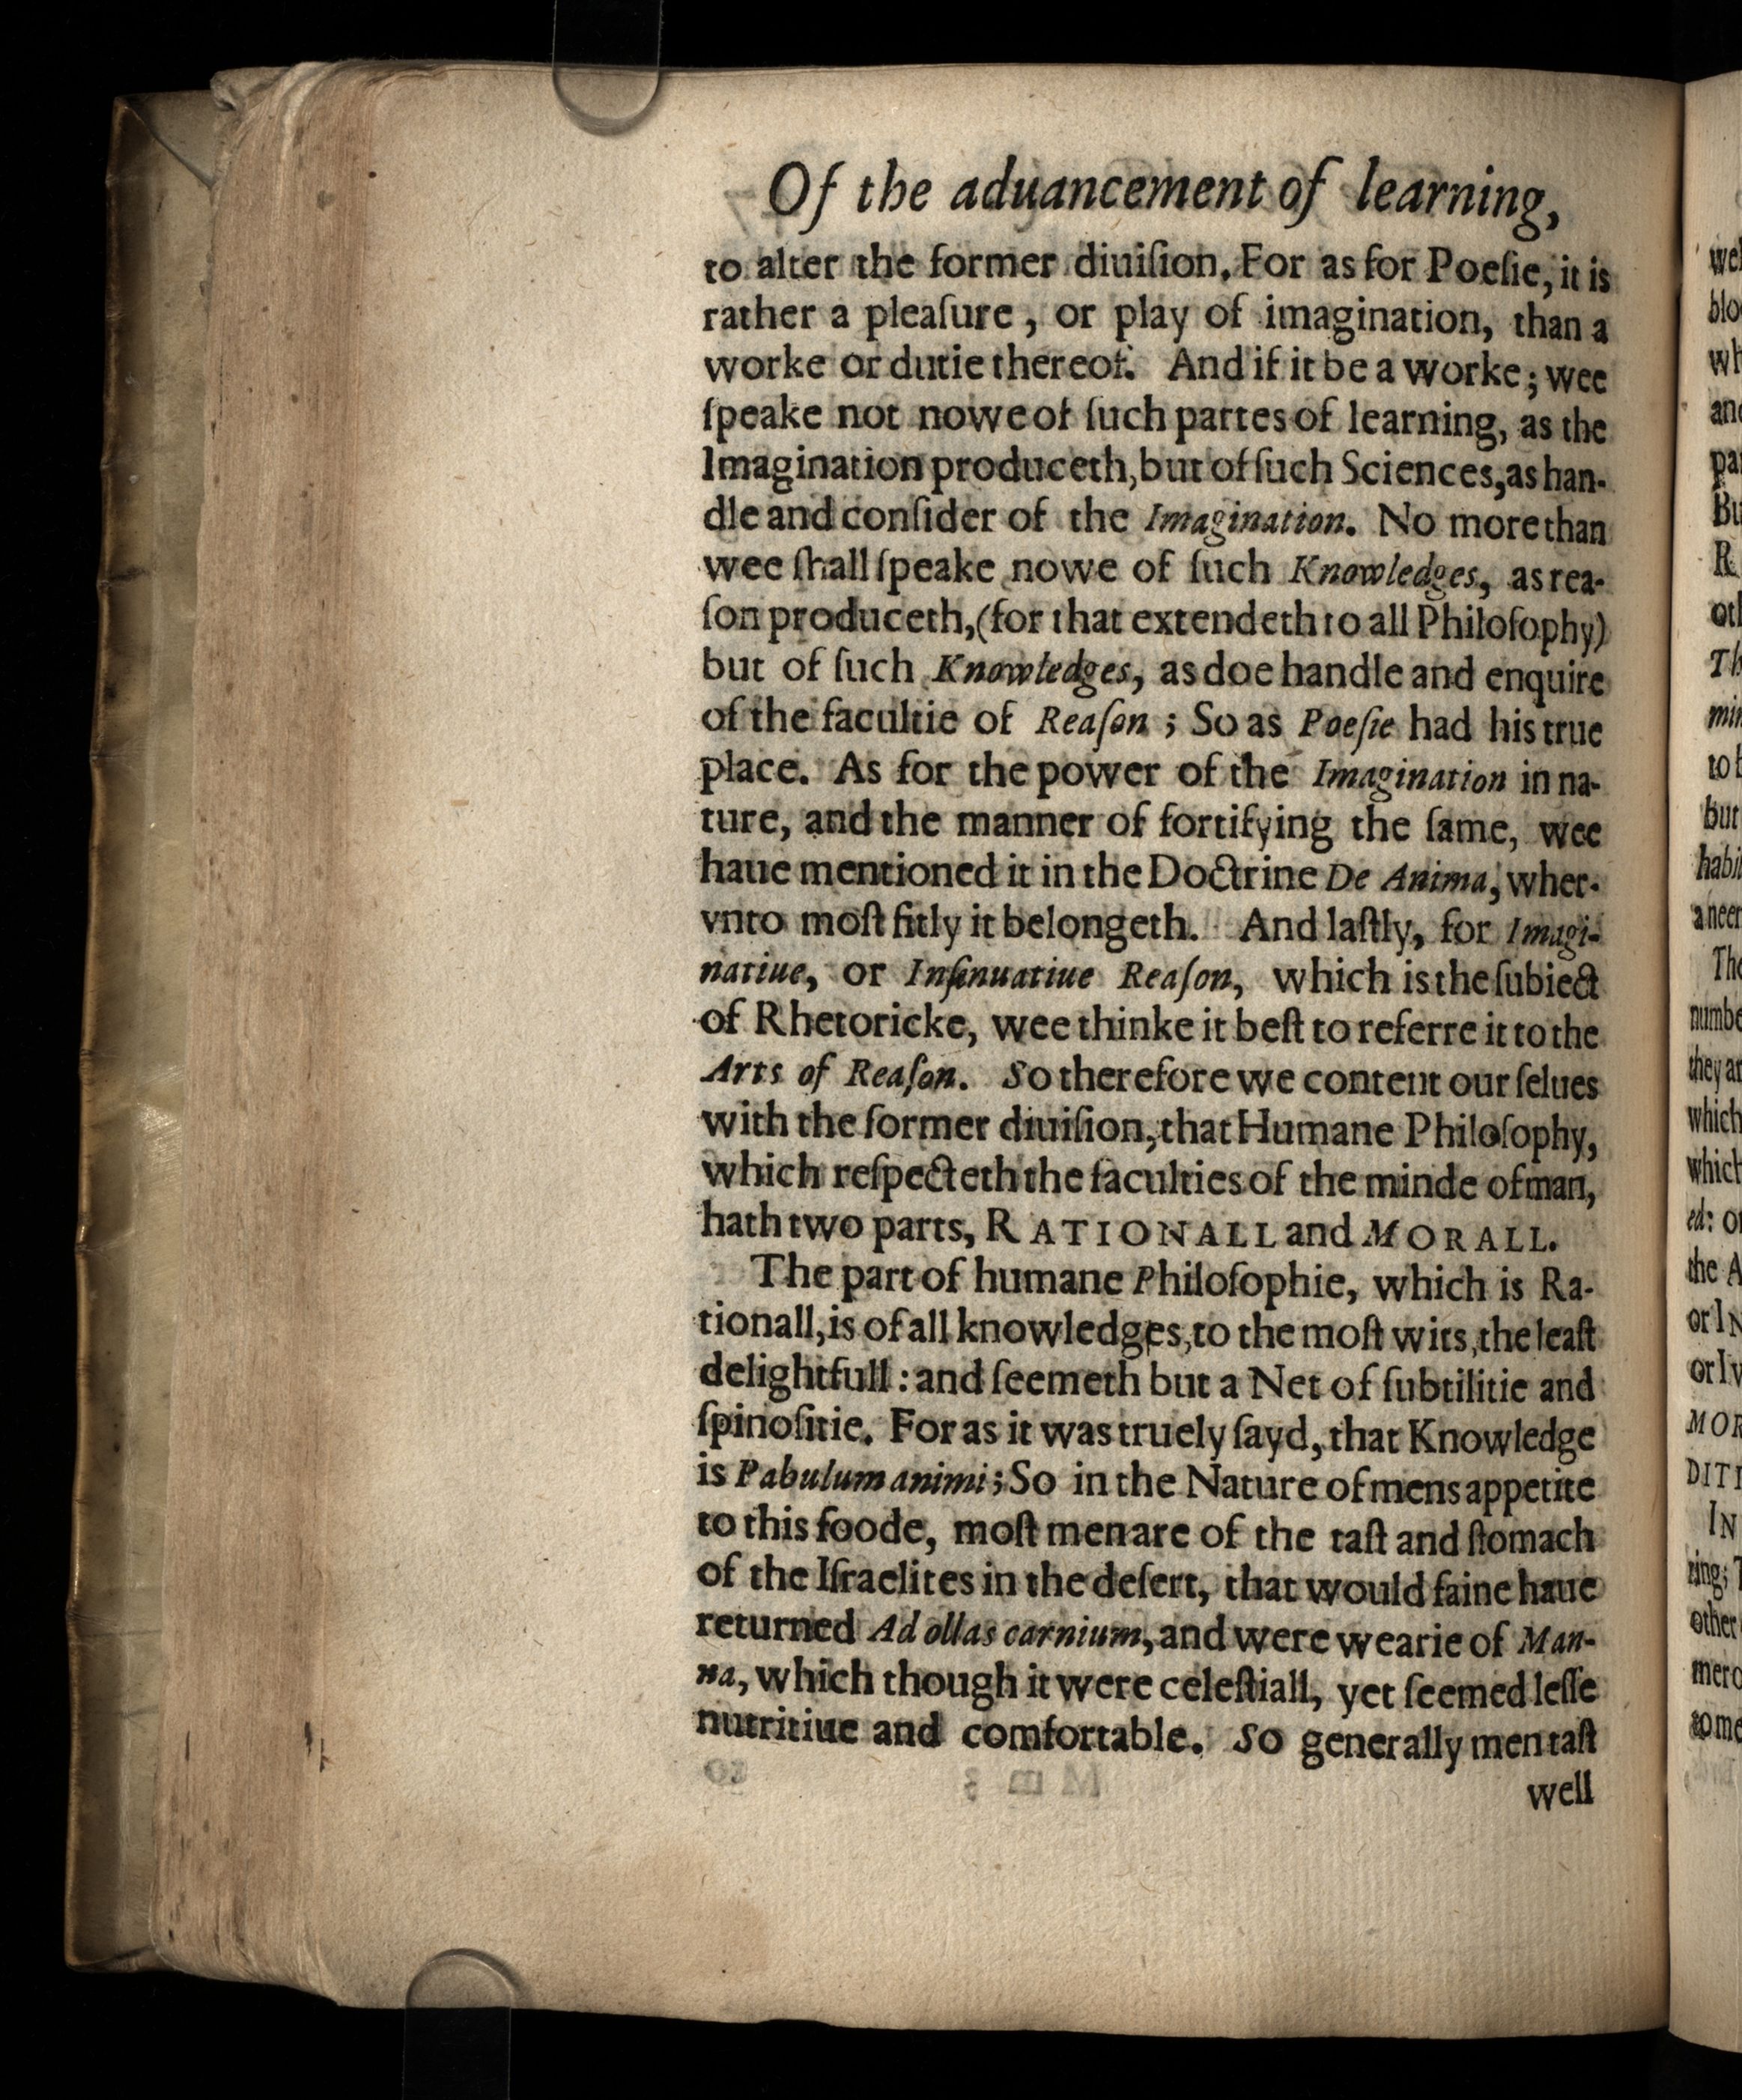 Of the aduancement of learning,
to alter the former diuiſion. For as for Poeſie, it is
rather a pleaſure, or play of imagination, than a
worke or dutie thereof. And if it be a worke; wee
ſpeake not nowe of ſuch partes of learning, as the
Imagination produceth, but of ſuch Sciences, as han-
dle and conſider of the Imagination. No more than
wee ſhall ſpeake nowe of ſuch Knowledges, as rea-
ſon produceth, (for that extendeth to all Philoſophy)
but of ſuch Knowledges, as doe handle and enquire
of the facultie of Reaſon; So as Poeſie had his true
place. As for the power of the Imagination in na-
ture, and the manner of fortifying the ſame, wee
haue mentioned it in the Doctrine De Anima, wher-
vnto moſt fitly it belongeth. And laſtly, for Imagi-
natiue, or Inſinuatiue Reaſon, which is the ſubiect
of Rhetoricke, wee thinke it beſt to referre it to the
Arts of Reaſon. So therefore we content our ſelues
with the former diuiſion, that Humane Philoſophy,
which reſpecteth the faculties of the minde of man,
hath two parts, RATIONALL and MORALL.
The part of humane Philoſophie, which is Ra-
tionall, is of all knowledges, to the moſt wits, the leaſt
delightfull: and ſeemeth but a Net of ſubtilitie and
ſpinoſitie. For as it was truely ſayd, that Knowledge
is Pabulum animi; So in the Nature of mens appetite
to this foode, moſt men are of the taſt and ſtomach
of the Iſraelites in the deſert, that would faine haue
returned Ad ollas carnium, and were wearie of Man-
na, which though it were celeſtiall, yet ſeemed leſſe
nutritiue and comfortable. So generally men taſt
well